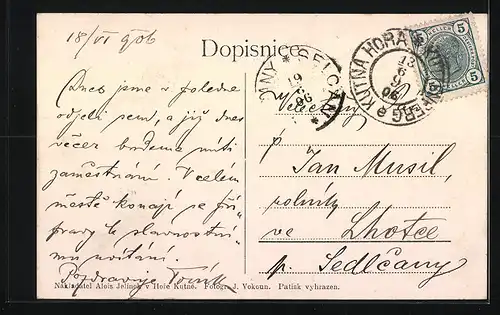 18/VI 906
Dopisnice
Dnes jsme v poledne
odjeli sem, a již dnes
večer budeme míti
zaměstnání. V celem
městě konají se pří-
pravy k slavnostní-
mu uvítání.
Pozdravuje
SELČANY * SELČAN
19
6
06
KUTNÁ HORA * KUTTENBERG
HELLER
5 5
Velectěný
p
Jan Musil,
rolník
ve Lhotce
p. Sedlčany
Nakladatel Alois Jelínek v Hoře Kutné. Fotogr. J. Vokoun. Patisk vyhrazen.